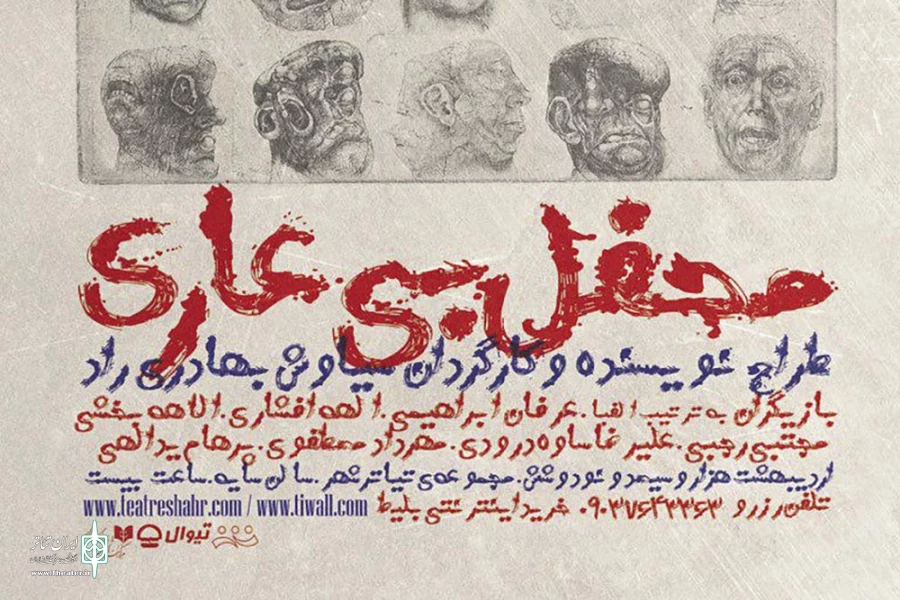 محفل بی عاری
طراح نویسنده و کارگردان سیاوش بهادری راد
بازیگران به ترتیب الفبا. عرفان ابراهیمی. الهه افشاری. الاهه بخشی
مجتبی رجبی. علیرضا ساوه درودی. مهرداد مصطفوی. پرهام یدالهی
اردیبهشت هزار و سیصد و نود و شش. مجموعه‌ی تیاتر شهر. سالن سایه. ساعت بیست
تلفن رزرو ۰۹۰۳۷۶۴۳۳۶۳ خرید اینترنتی بلیط www.tiwall.com / www.teatreshahr.com
تیوال
ایران تئاتر
www.Theater.ir